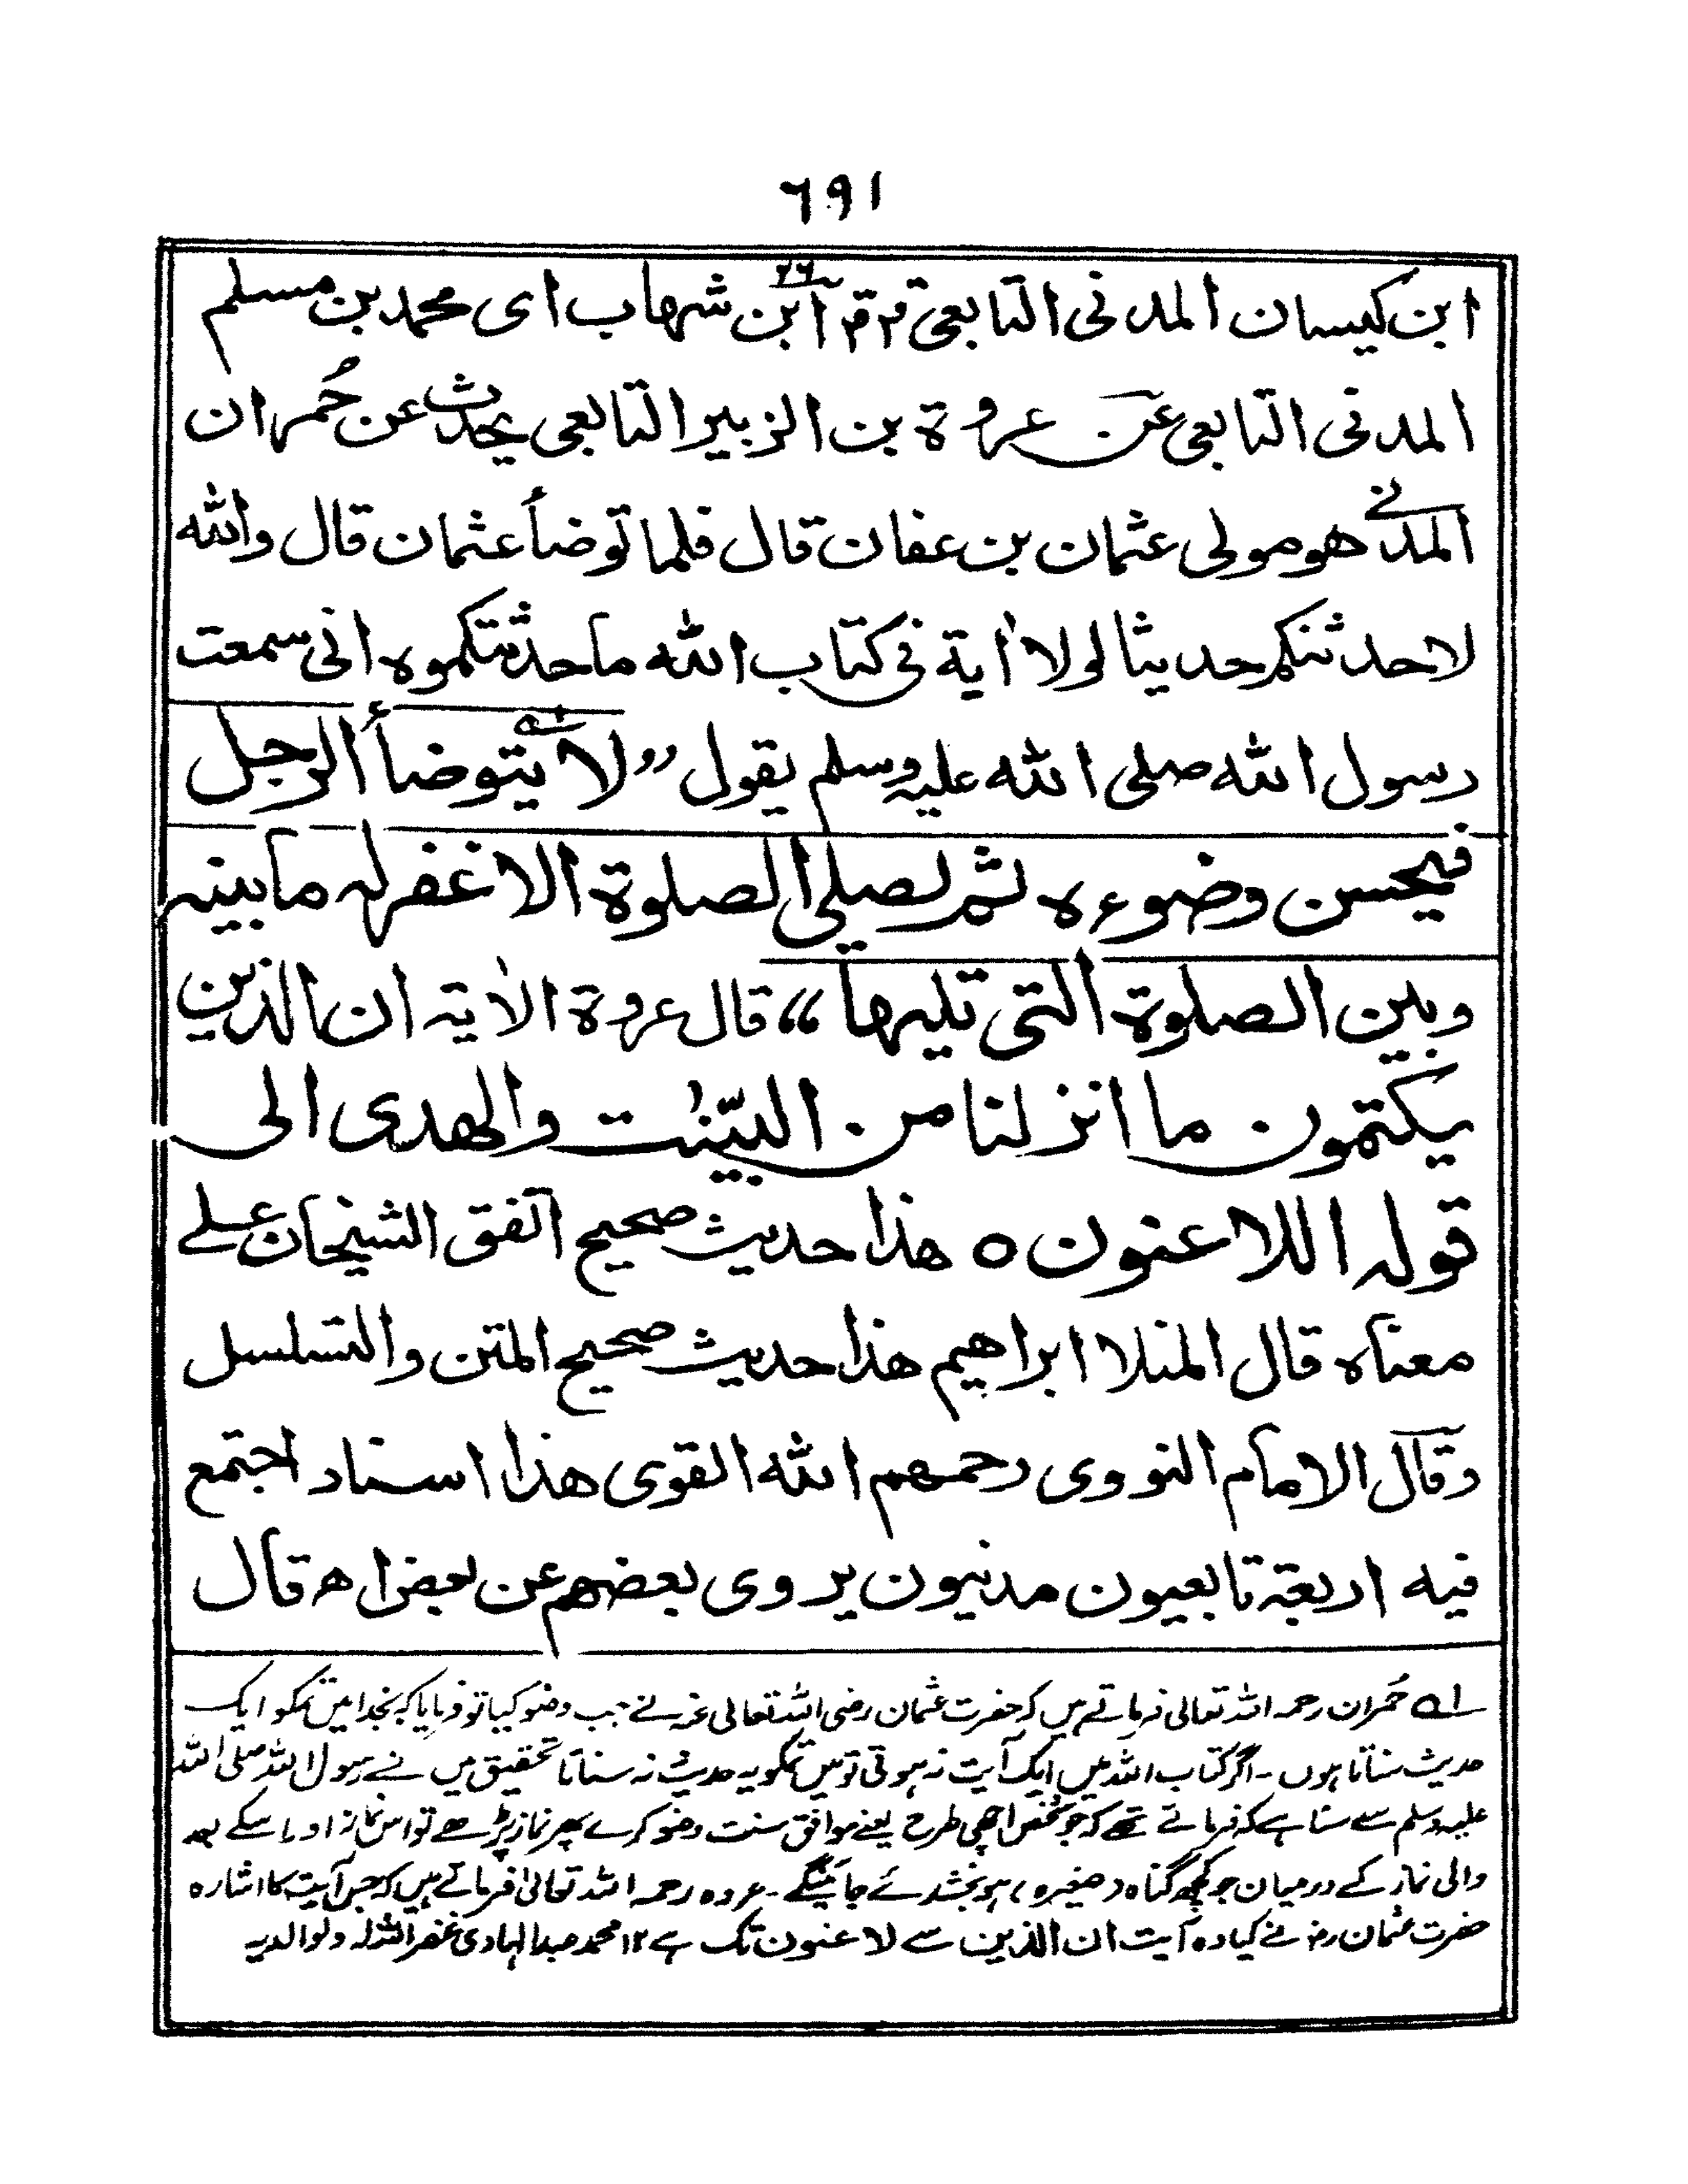 ٦٩١
ابن كيسان المدنى التابعى ابن شهاب اى محمد بن مسلم
المدنى التابعى عن عروة بن الزبير التابعى يحدث عن حُمران
المدنے هو مولى عثمان بن عفان قال فلما توضأ عثمان قال والله
لاحدثنكم حديثا لولا اٰية فى كتاب الله ما حدثتكموه انى سمعت
رسول الله صلى الله عليه وسلم يقول ”لا يتوضأ الرجل
فيحسن وضوءه ثم يصلى الصلوة الا غفرله ما بينه
وبين الصلوة التى تليها“ قال عروة الاٰية ان الذين
يكتمون ما انزلنا من البيّنٰت والهدى الى
قوله اللاعنون ه هذا حديث صحيح اتفق الشيخان علے
معناه قال المنلا ابراهيم هذا حديث صحيح المتن والتسلسل
وقال الامام النووى رحمهم الله القوى هذا اسناد اجتمع
فيه اربعة تابعيون مدنيون يروى بعضهم عن بعض اه قال
لے حُمران رحمہ اللہ تعالی فرماتے ہیں کہ حضرت عثمان رضی اللہ تعالی عنہ نے جب وضو کیا تو فرمایا کہ بخدا میں تمکو ایک
حدیث سناتا ہوں ۔ اگر کتاب اللہ میں ایک آیت نہ ہوتی تو میں تمکو یہ حدیث نہ سناتا تحقیق میں نے رسول اللہ صلی اللہ
علیہ وسلم سے سنا ہے کہ فرماتے تھے کہ جو شخص اچھی طرح یعنے موافق سنت وضو کرے پھر نماز پڑھے تو اس نماز اور اسکے بعد
والی نماز کے درمیان جو کچھ گناہ (صغیرہ) ہو بخشدئے جائینگے ۔ عروہ رحمہ اللہ تعالی فرماتے ہیں کہ جس آیت کا اشارہ
حضرت عثمان رض نے کیا وہ آیت ان الذین سے لاعنون تک ہے ١٢ محمد عبدالہادی غفر اللہ لہ ولوالدیہ